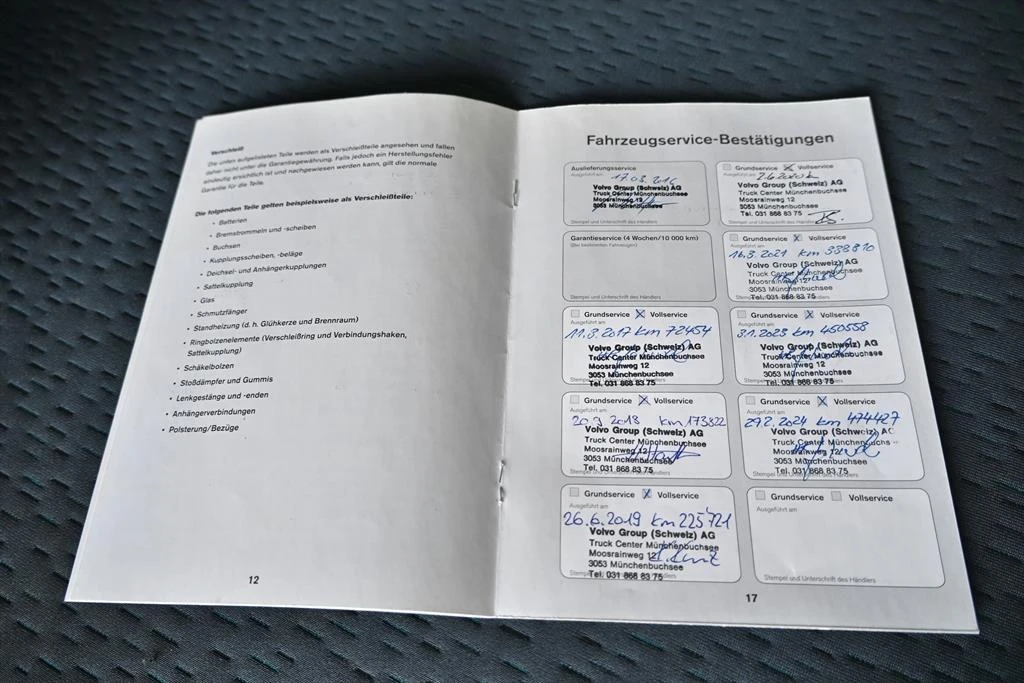 Verschleiß
Die unten aufgelisteten Teile werden als Verschleißteile angesehen und fallen
daher nicht unter die Garantiegewährung. Falls jedoch ein Herstellungsfehler
eindeutig ersichtlich ist und nachgewiesen werden kann, gilt die normale
Garantie für die Teile.
Die folgenden Teile gelten beispielsweise als Verschleißteile:
• Batterien
• Bremstrommeln und -scheiben
• Buchsen
• Kupplungsscheiben, -beläge
• Deichsel- und Anhängerkupplungen
• Sattelkupplung
• Glas
• Schmutzfänger
• Standheizung (d. h. Glühkerze und Brennraum)
• Ringbolzenelemente (Verschleißring und Verbindungshaken,
Sattelkupplung)
• Schäkelbolzen
• Stoßdämpfer und Gummis
• Lenkgestänge und -enden
• Anhängerverbindungen
• Polsterung/Bezüge
12
Fahrzeugservice-Bestätigungen
Auslieferungsservice
Ausgeführt am
17.03.2016
Volvo Group (Schweiz) AG
Truck Center Münchenbuchsee
Moosrainweg 12
3053 Münchenbuchsee
Stempel und Unterschrift des Händlers
Garantieservice (4 Wochen/10 000 km)
(Bei bestimmten Fahrzeugen)
Stempel und Unterschrift des Händlers
Grundservice X Vollservice
Ausgeführt am
11.3.2017 km 72454
Volvo Group (Schweiz) AG
Truck Center Münchenbuchsee
Moosrainweg 12
3053 Münchenbuchsee
Tel. 031 868 83 75
Grundservice X Vollservice
Ausgeführt am
20.9.2018 km 173822
Volvo Group (Schweiz) AG
Truck Center Münchenbuchsee
Moosrainweg 12
3053 Münchenbuchsee
Tel. 031 868 83 75
Grundservice X Vollservice
Ausgeführt am
26.6.2019 km 225'721
Volvo Group (Schweiz) AG
Truck Center Münchenbuchsee
Moosrainweg 12
3053 Münchenbuchsee
Tel. 031 868 83 75
Grundservice X Vollservice
Ausgeführt am
Volvo Group (Schweiz) AG
Truck Center Münchenbuchsee
Moosrainweg 12
3053 Münchenbuchsee
Tel. 031 868 83 75
Stempel und Unterschrift des Händlers
Grundservice X Vollservice
Ausgeführt am
16.3.2021 km 338810
Volvo Group (Schweiz) AG
Truck Center Münchenbuchsee
Moosrainweg 12
3053 Münchenbuchsee
Tel. 031 868 83 75
Grundservice X Vollservice
Ausgeführt am
3.1.2023 km 450558
Volvo Group (Schweiz) AG
Truck Center Münchenbuchsee
Moosrainweg 12
3053 Münchenbuchsee
Tel. 031 868 83 75
Grundservice X Vollservice
Ausgeführt am
29.2.2024 km 474427
Volvo Group (Schweiz) AG
Truck Center Münchenbuchs
Moosrainweg 12
3053 Münchenbuchsee
Tel. 031 868 83 75
Grundservice Vollservice
Ausgeführt am
Stempel und Unterschrift des Händlers
17